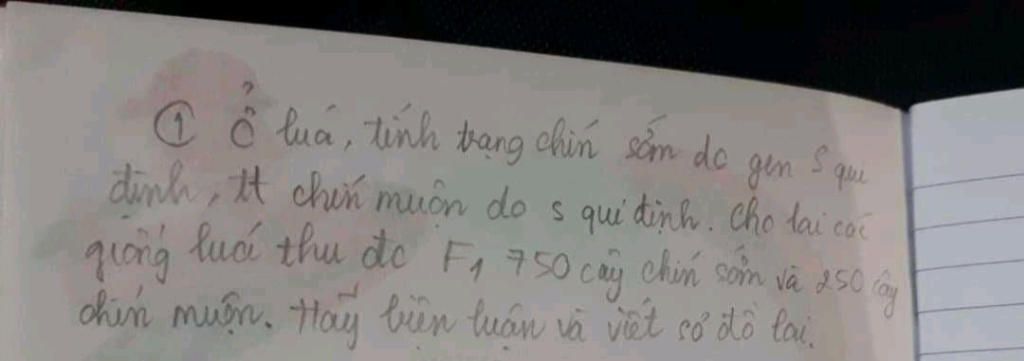 ① Ở lúa, tính trạng chín sớm do gen S qui
định, tt chín muộn do s qui định. Cho lai các
giống lúa thu đc F1 750 cây chín sớm và 250 cây
chín muộn. Hãy biện luận và viết sơ đồ lai.